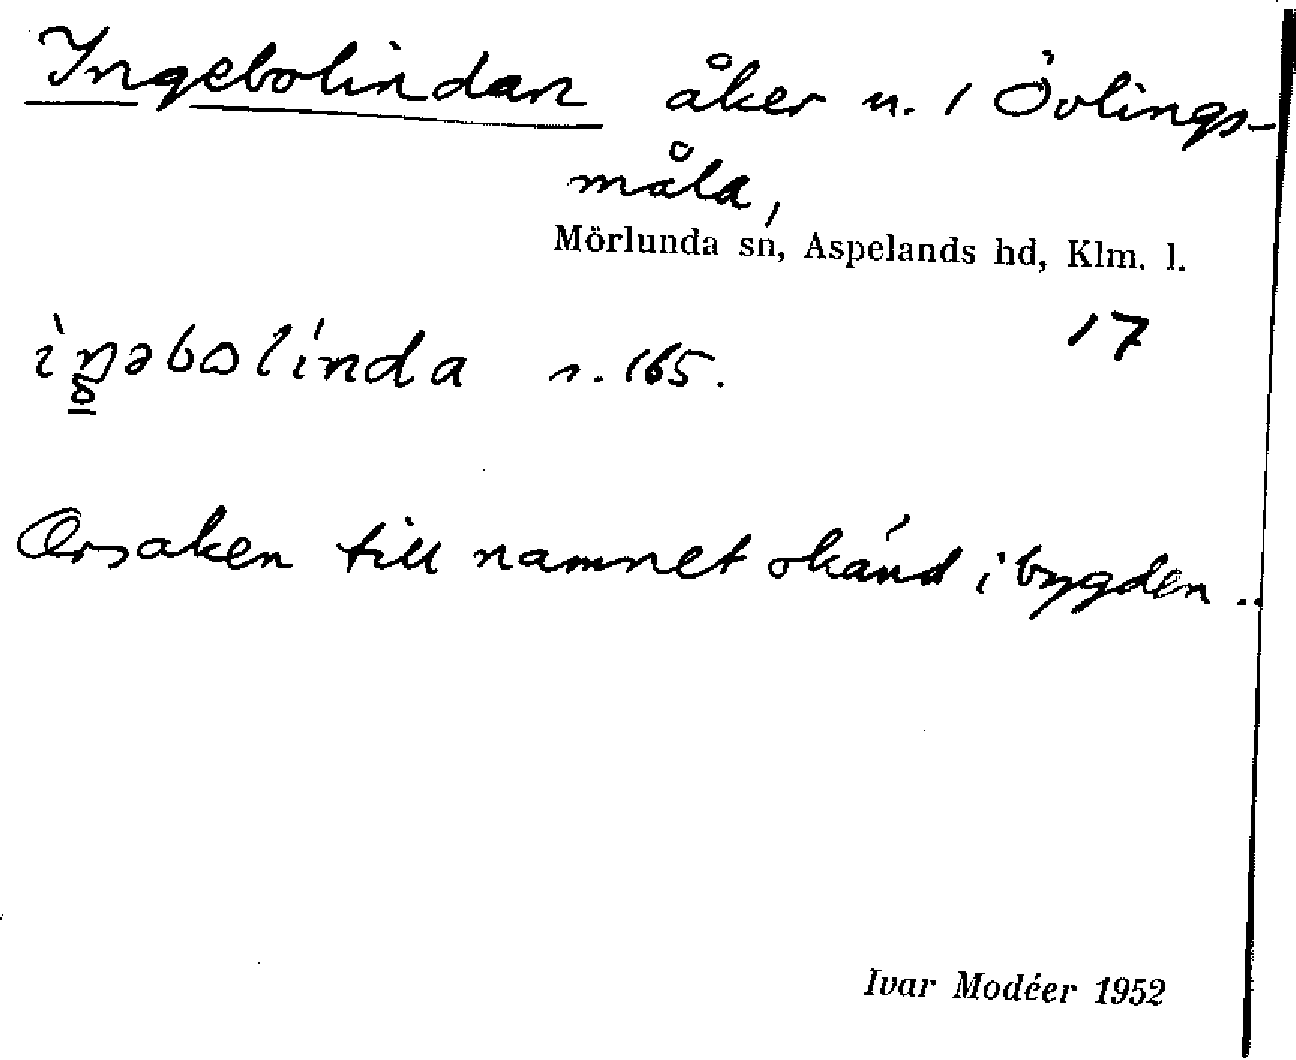 Ingebolindan åker n. 1 Övlings-
måla,
Mörlunda sn, Aspelands hd, Klm. l.
17
s. 165.
Orsaken till namnet okänd i bygden..
Ivar Modéer 1952